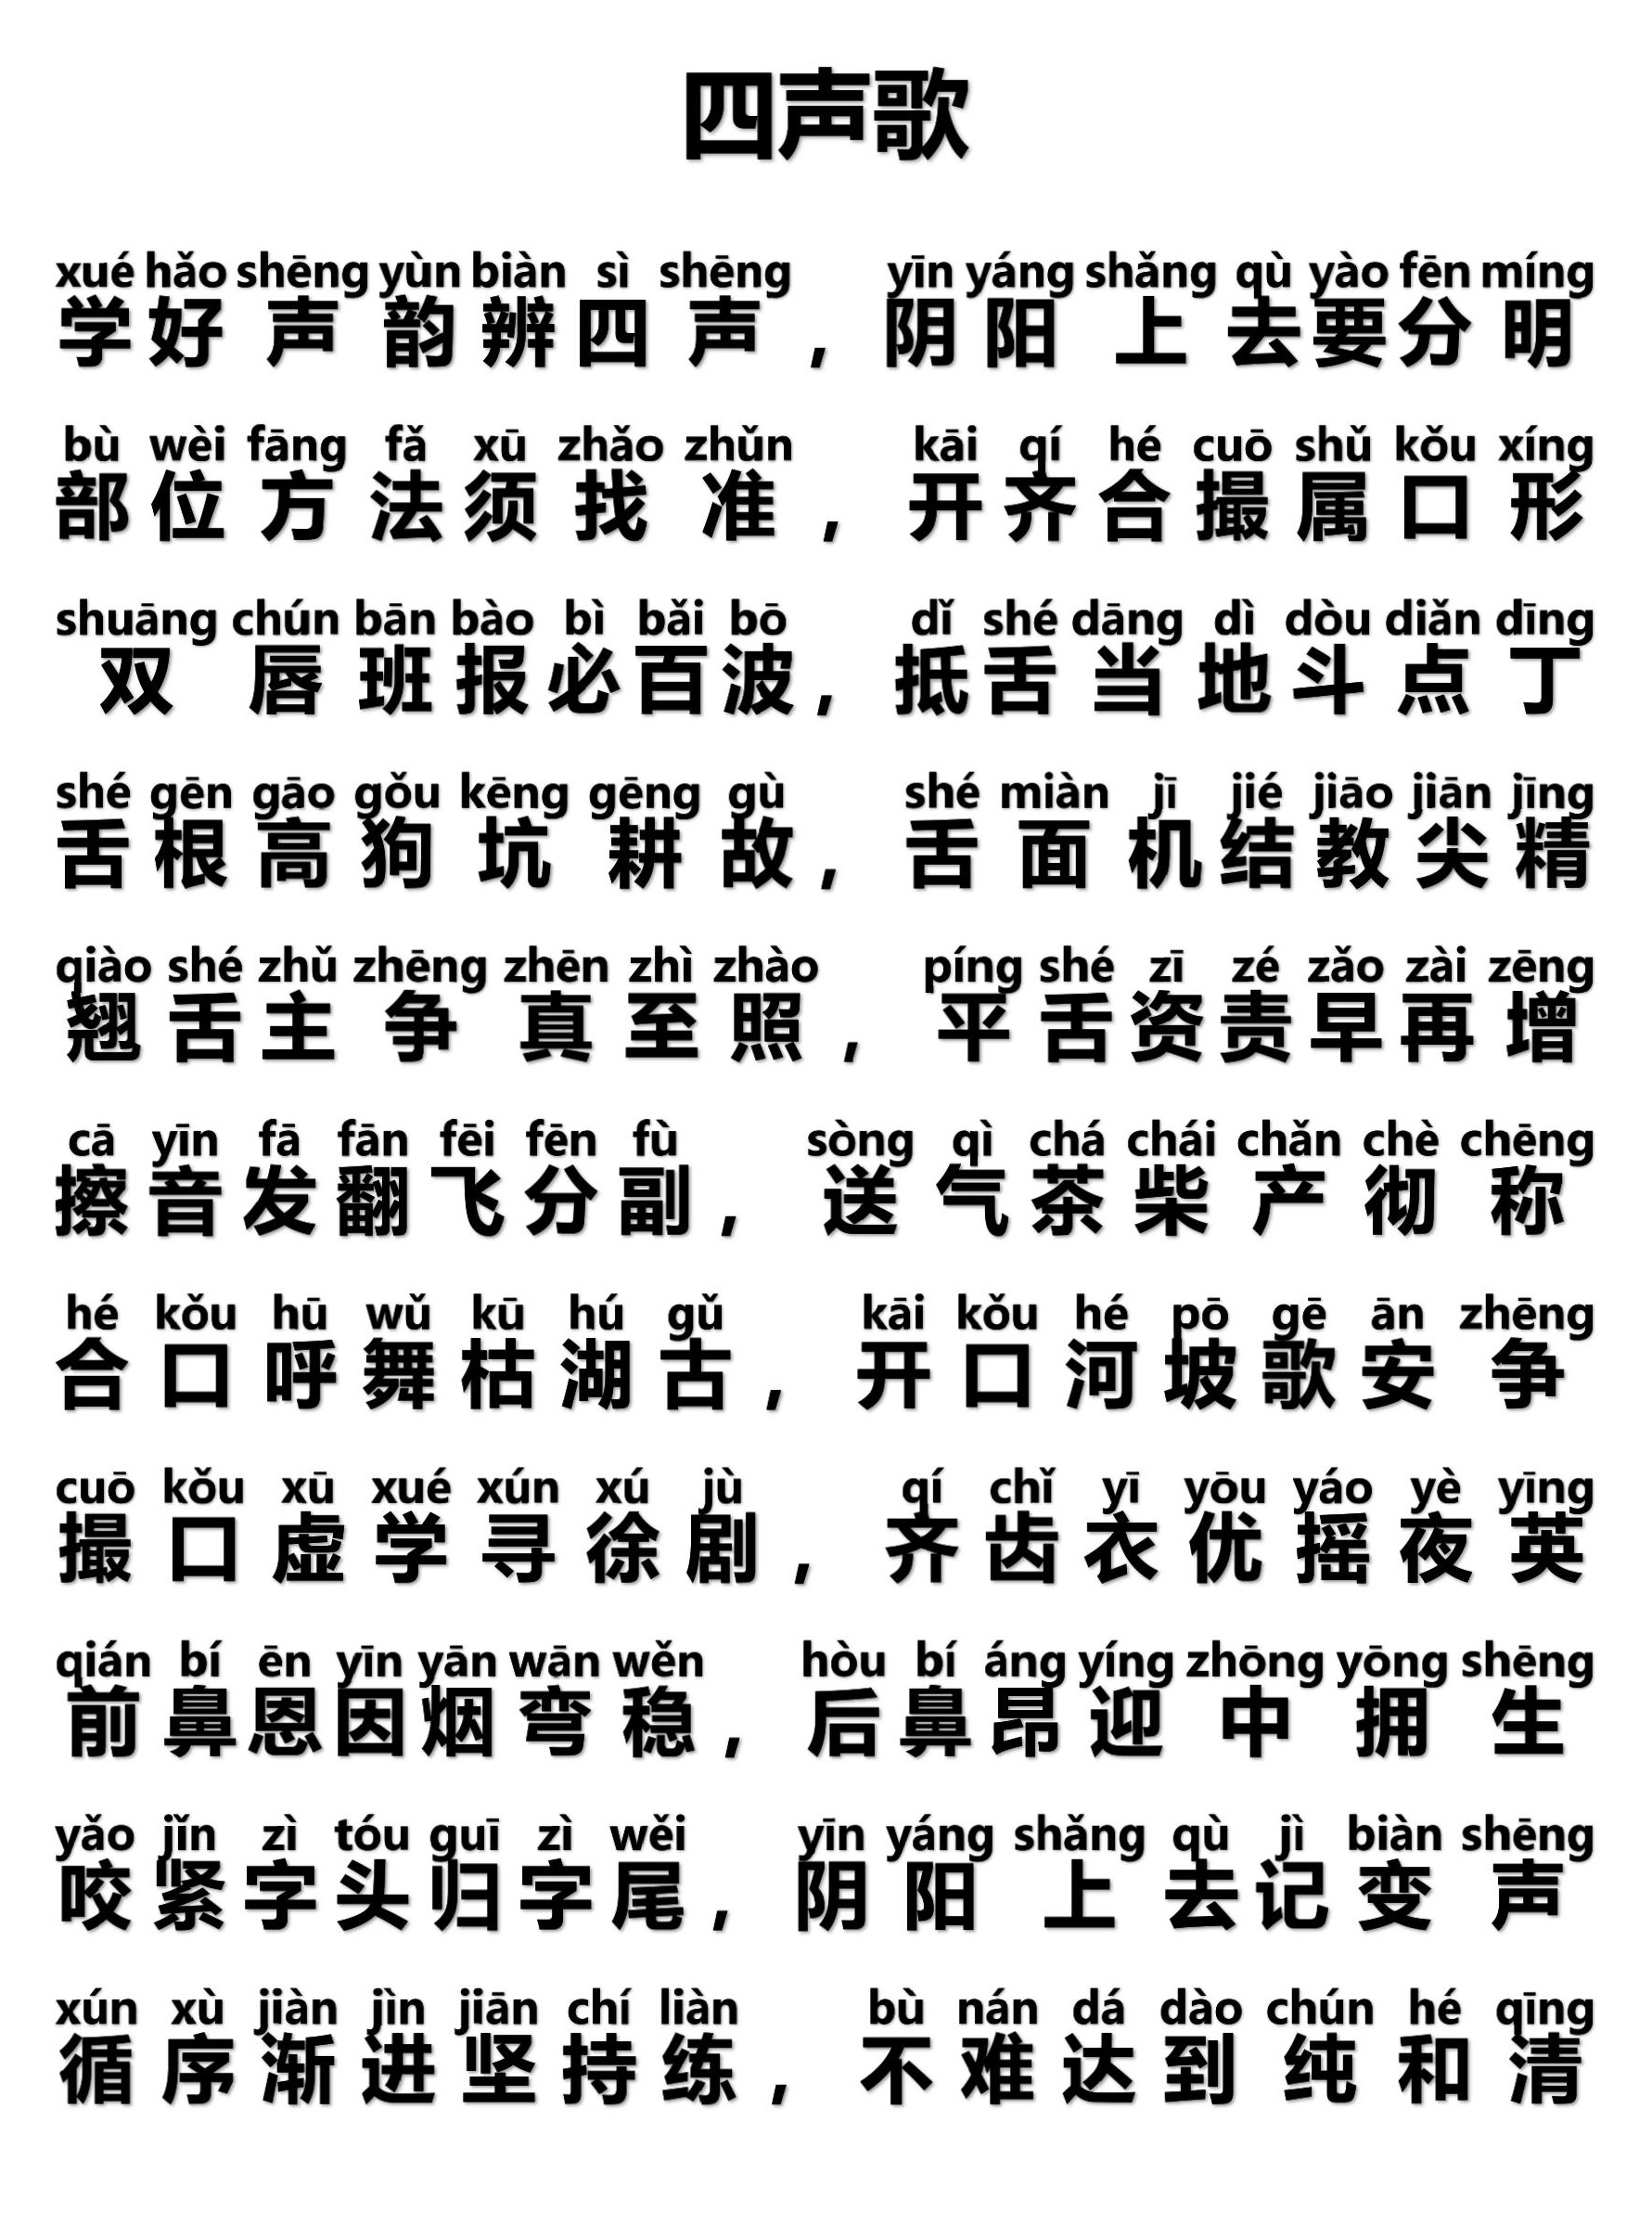 四声歌
xué hǎo shēng yùn biàn sì shēng yīn yáng shǎng qù yào fēn míng
学好声韵辨四声，阴阳上去要分明
bù wèi fāng fǎ xū zhǎo zhǔn kāi qí hé cuō shǔ kǒu xíng
部位方法须找准，开齐合撮属口形
shuāng chún bān bào bì bǎi bō dǐ shé dāng dì dòu diǎn dīng
双唇班报必百波，抵舌当地斗点丁
shé gēn gāo gǒu kēng gēng gù shé miàn jī jié jiāo jiān jīng
舌根高狗坑耕故，舌面机结教尖精
qiào shé zhǔ zhēng zhēn zhì zhào píng shé zī zé zǎo zài zēng
翘舌主争真至照，平舌资责早再增
cā yīn fā fān fēi fēn fù sòng qì chá chái chǎn chè chēng
擦音发翻飞分副，送气茶柴产彻称
hé kǒu hū wǔ kū hú gǔ kāi kǒu hé pō gē ān zhēng
合口呼舞枯湖古，开口河坡歌安争
cuō kǒu xū xué xún xú jù qí chǐ yī yōu yáo yè yīng
撮口虚学寻徐剧，齐齿衣优摇夜英
qián bí ēn yīn yān wān wěn hòu bí áng yíng zhōng yōng shēng
前鼻恩因烟弯稳，后鼻昂迎中拥生
yǎo jǐn zì tóu guī zì wěi yīn yáng shǎng qù jì biàn shēng
咬紧字头归字尾，阴阳上去记变声
xún xù jiàn jìn jiān chí liàn bù nán dá dào chún hé qīng
循序渐进坚持练，不难达到纯和清